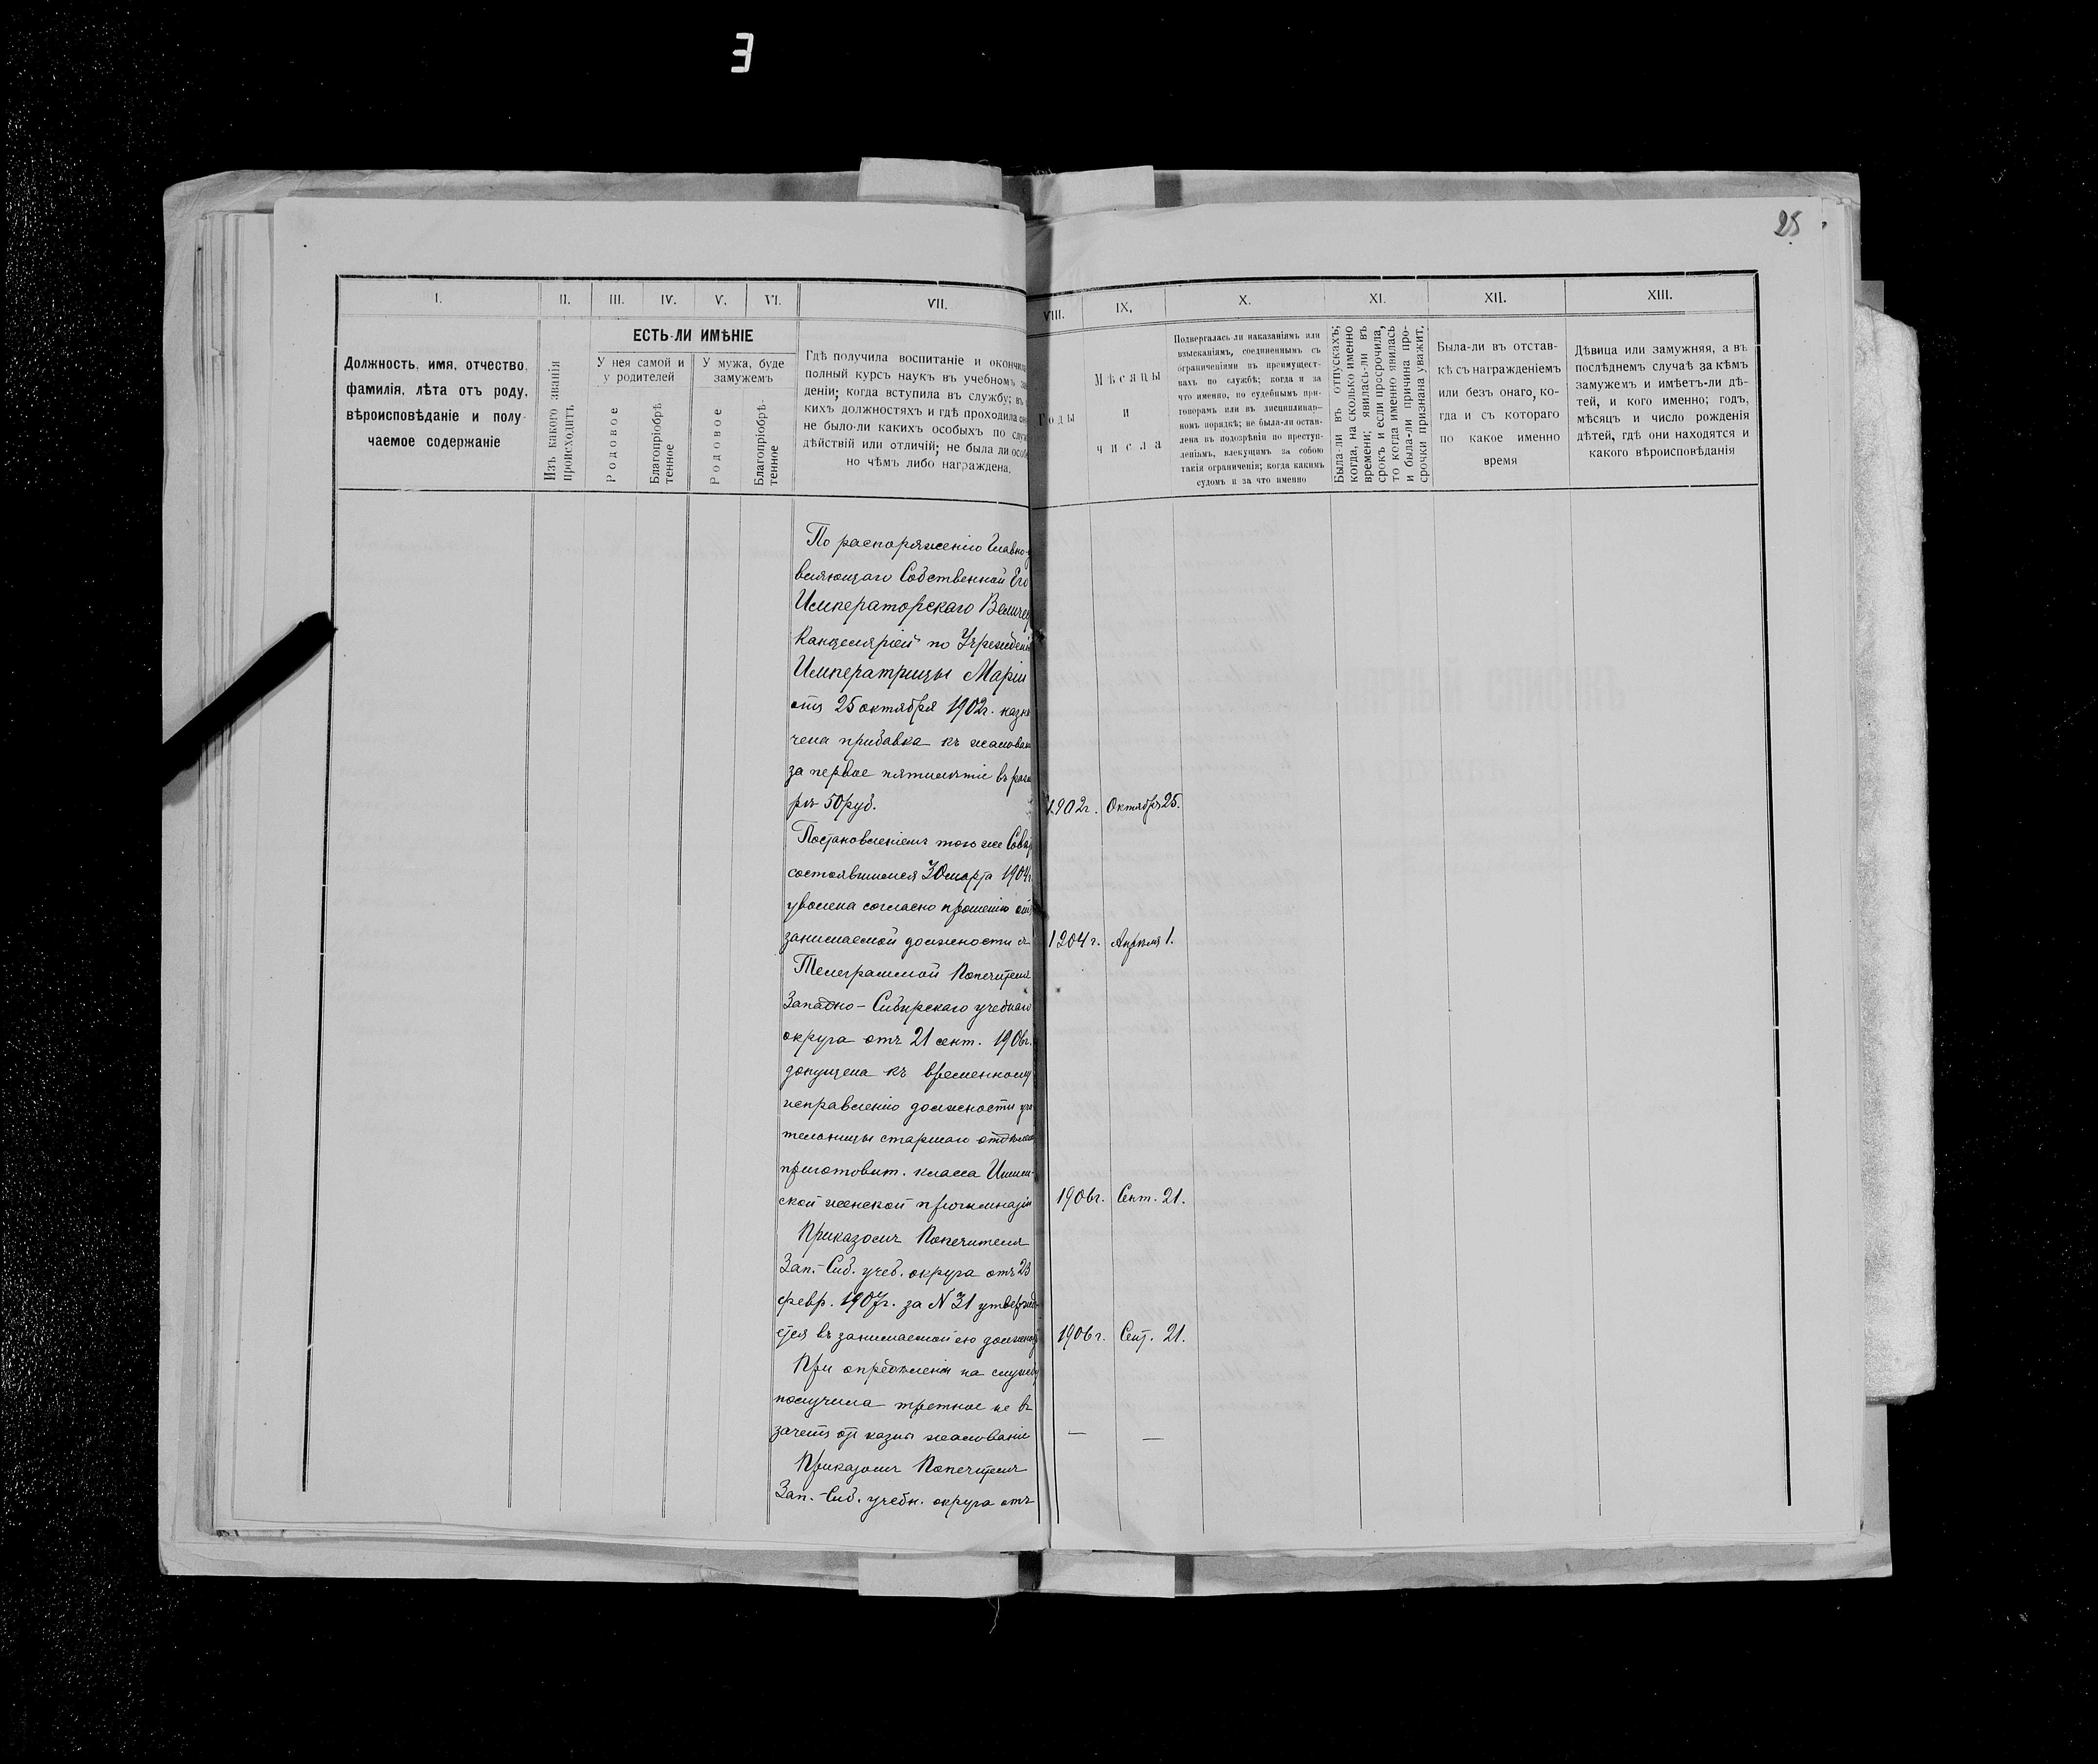 25
I. II. III. IV. V. VI. VII. VIII. IX. X. XI. XII. XIII.
Должность, имя, отчество,
фамилія, лѣта отъ роду,
вѣроисповѣданіе и полу-
чаемое содержаніе
Изъ какого званія
происходитъ
ЕСТЬ-ЛИ ИМѢНІЕ
У нея самой и
у родителей
У мужа, буде
замужемъ
Родовое
Благопріобрѣ
тенное
Родовое
Благопріобрѣ-
тенное
Гдѣ получила воспитаніе и окончила
полный курсъ наукъ въ учебномъ за
деніи; когда вступила въ службу; въ
кихъ должностяхъ и гдѣ проходила
не было-ли какихъ особыхъ по служ
дѣйствій или отличій; не была ли особ
но чѣмъ либо награждена.
Годы
Мѣсяцы
и
числа
Подвергалась-ли наказаніямъ или
взысканіямъ, соединеннымъ съ
ограниченіями въ преимущест-
вахъ по службѣ; когда и за
что именно, по судебнымъ при-
говорамъ или въ дисциплинар-
номъ порядкѣ; не была-ли остав-
лена въ подозрѣніи по преступ-
леніямъ, влекущимъ за собою
такія ограниченія; когда какимъ
судомъ и за что именно
Была-ли въ отпускахъ;
когда, на сколько именно
времени; явилась-ли въ
срокъ и если просрочила,
то когда именно явилась
и была-ли причина про-
срочки признана уважит.
Была-ли въ отстав-
кѣ съ награжденіемъ
или безъ онаго, ко-
гда и съ котораго
по какое именно
время
Дѣвица или замужняя, а въ
послѣднемъ случаѣ за кѣмъ
замужемъ и имѣетъ-ли дѣ-
тей, и кого именно; годъ,
мѣсяцъ и число рожденія
дѣтей, гдѣ они находятся и
какого вѣроисповѣданія
По распоряженію Главно-
вляющаго Собственной Его
Императорскаго Величес
Канцеляріей по Учрежден
Императрицы Маріи
отъ 25 октября 1902г. назна
чена прибавка къ жалован
за первое пятилѣтіе въ разм
рѣ 50 руб. 1902г. Октября 25.
Постановленіемъ того же Совѣт
состоявшимся 30 марта 1904г
уволена согласно прошенію отъ
занимаемой должности съ 1904г. Апрѣля 1.
Телеграммой Попечителя
Западно-Сибирскаго учебнаго
округа отъ 21 сент. 1906г.
допущена къ временному
исправленію должности учи
тельницы старшаго отдѣлен
приготовит. класса Ишим-
ской женской прогимназіи 1906г. Сент. 21.
Приказомъ Попечителя
Зап.-Сиб. учеб. округа отъ 23
февр. 1907г. за N 31 утвержда-
ется въ занимаемой ею должност 1906г. Сент. 21.
При опредѣленіи на службу
получила третное не въ
зачетъ отъ казны жалованіе — —
Приказомъ Попечителя
Зап.-Сиб. учебн. округа отъ